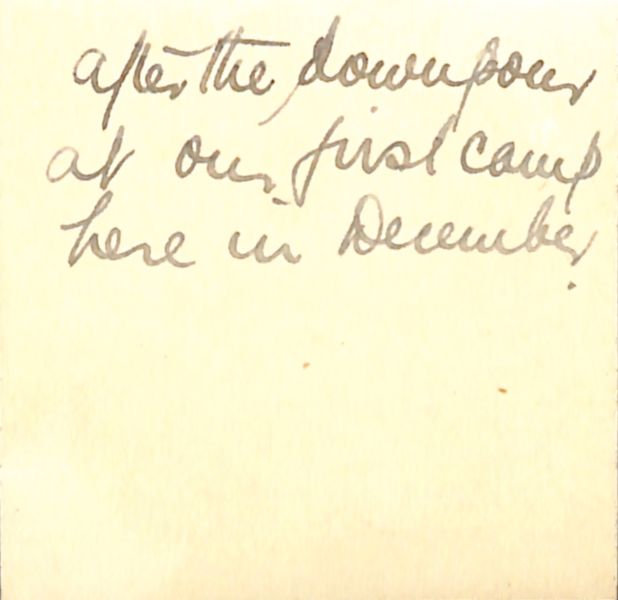 after the downpour
at our first camp
here in December.